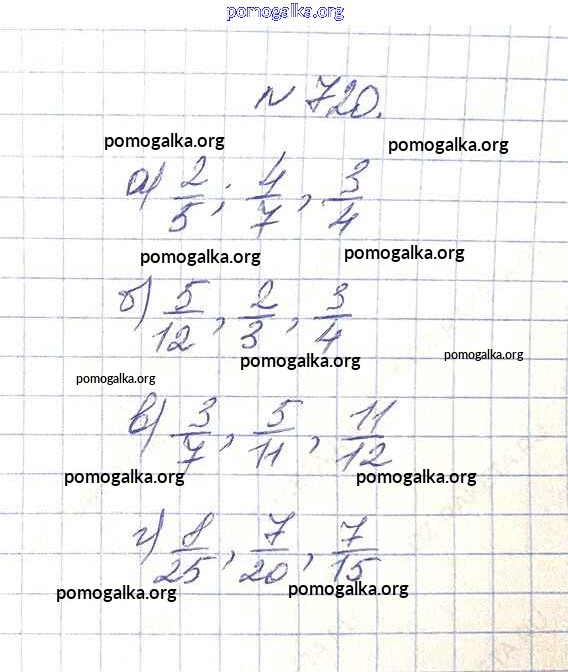 pomogalka.org
№ 720.
pomogalka.org pomogalka.org
а) 2/5; 4/7, 3/4
pomogalka.org pomogalka.org
б) 5/12, 2/3, 3/4
pomogalka.org pomogalka.org
pomogalka.org
в) 3/7, 5/11, 11/12
pomogalka.org pomogalka.org
г) 8/25, 7/20, 7/15
pomogalka.org pomogalka.org